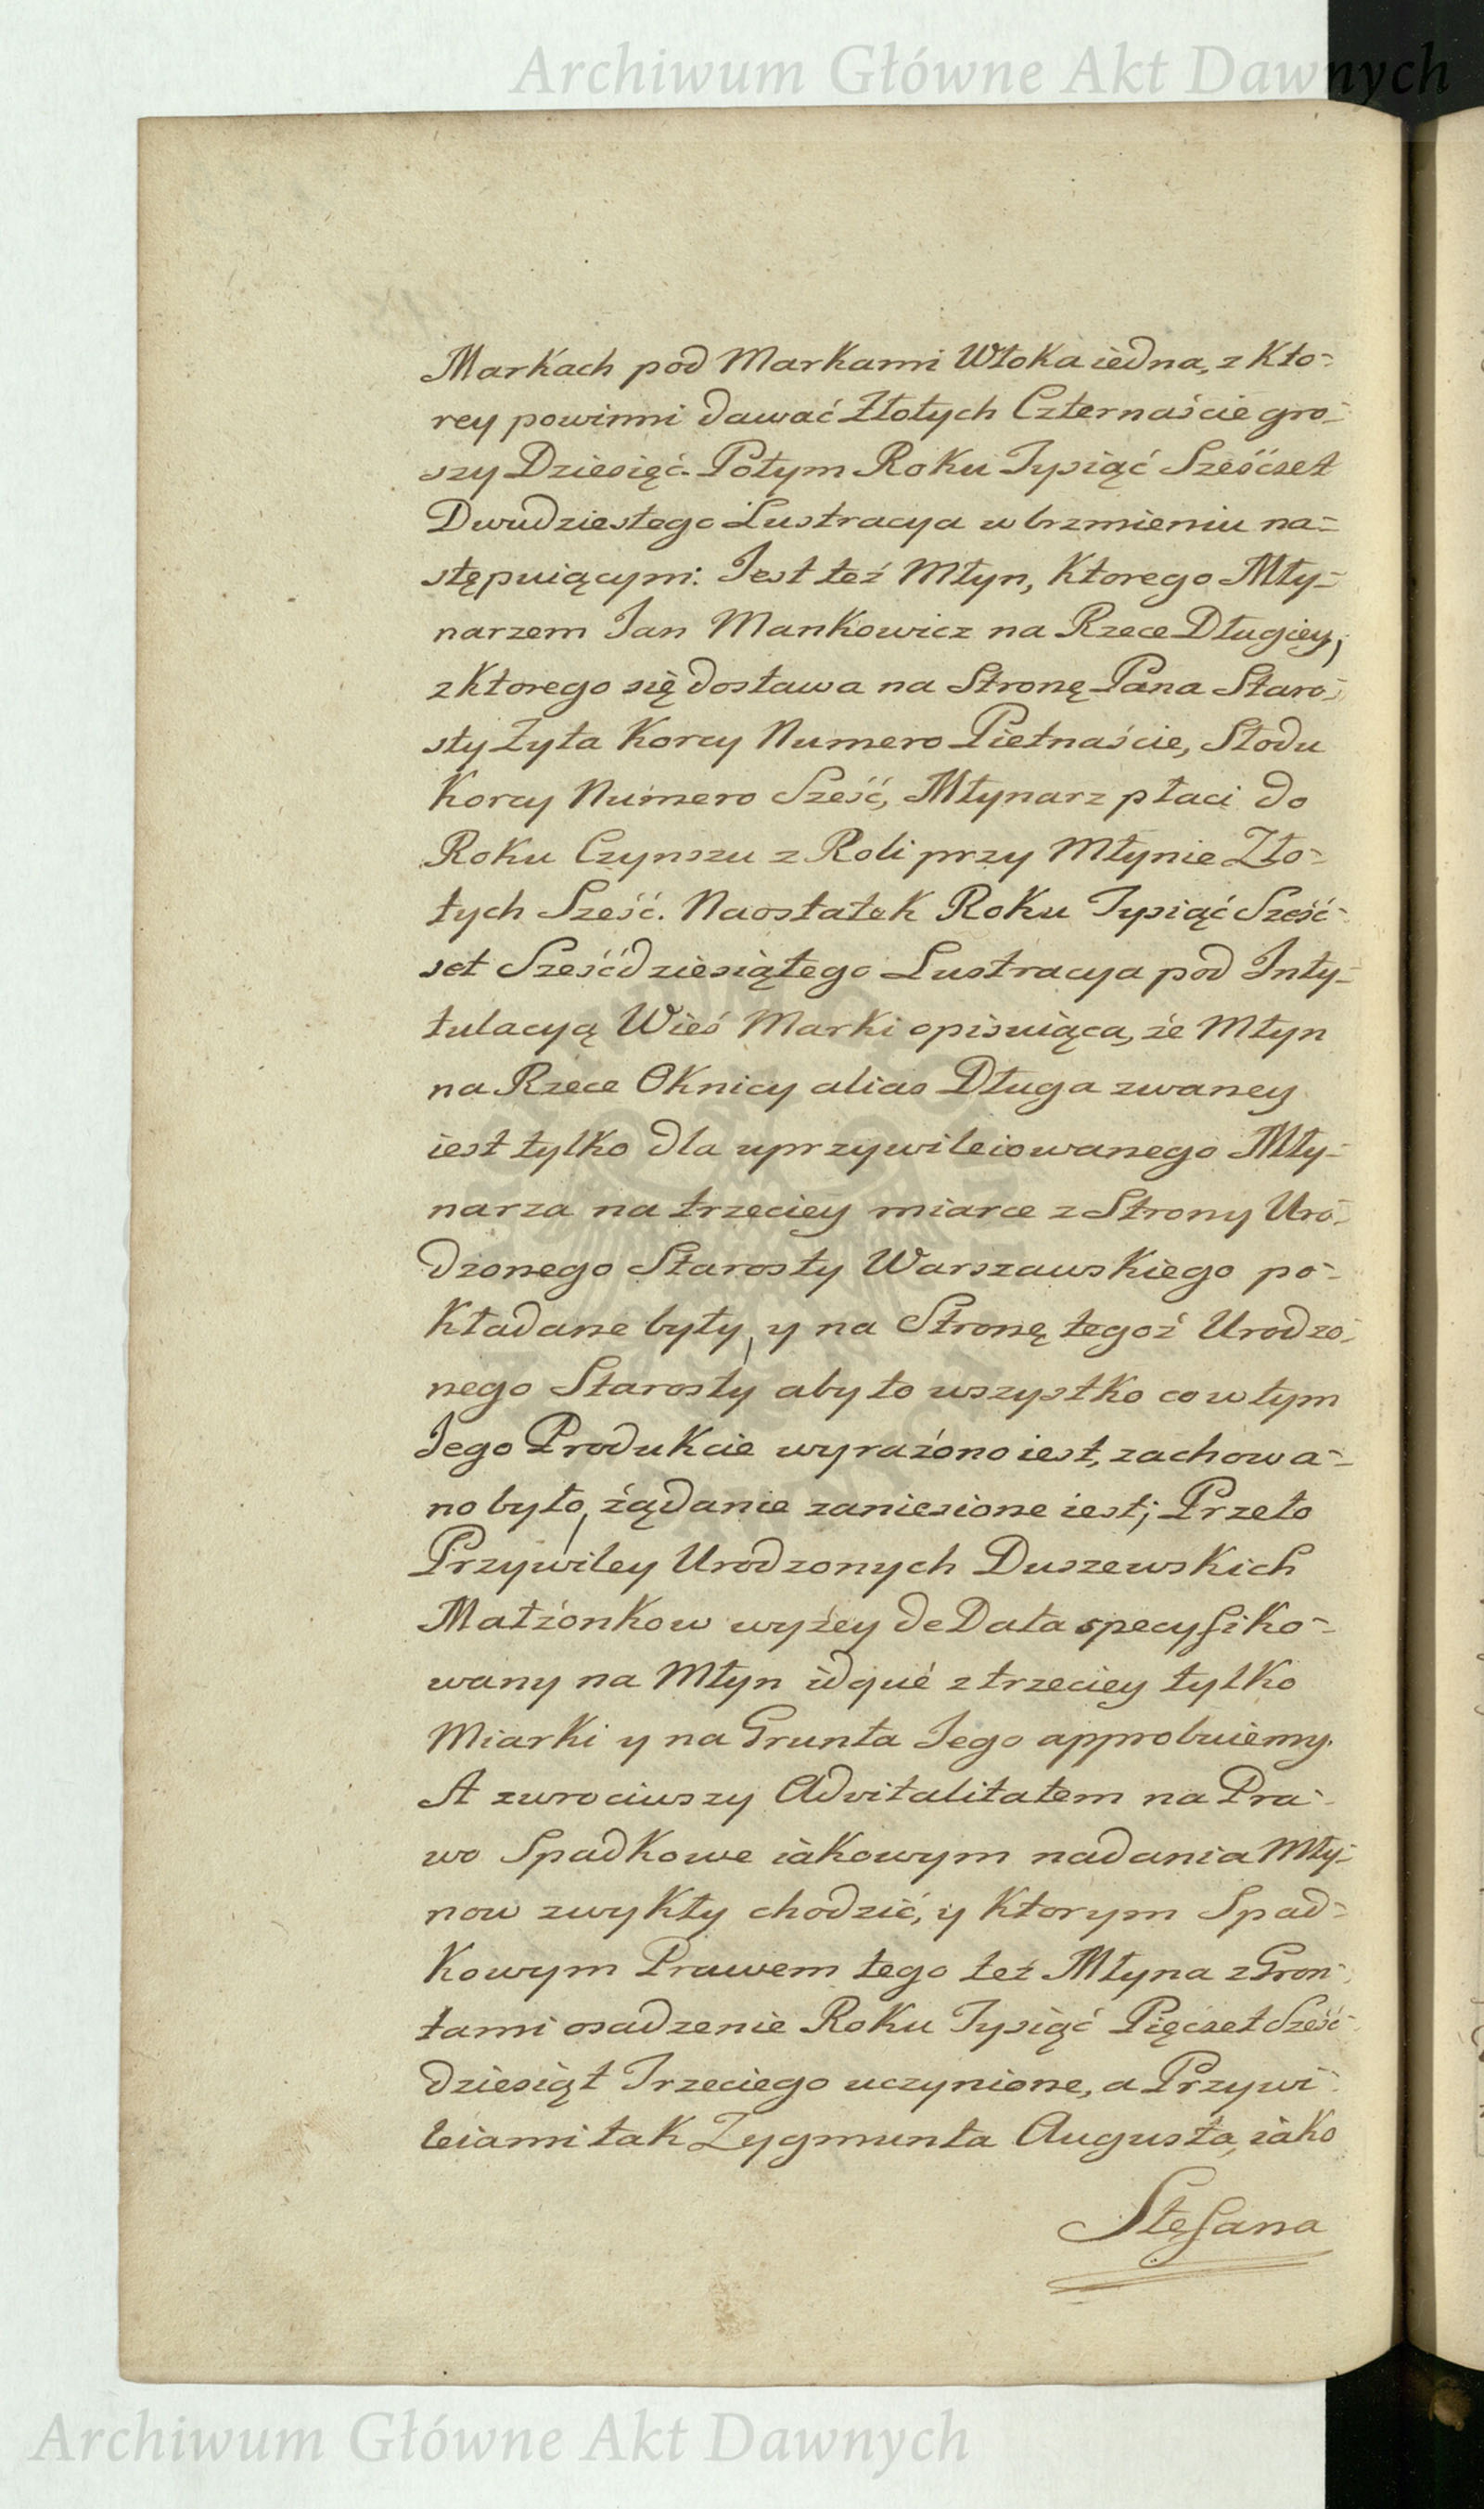 Archiwum Główne Akt Dawnych
Markach pod Markami Włoka iedna, z kto-
rey powinni dawać Złotych Czternaście gro-
szy Dziesięć. Potym Roku Tysiąć Sześćset
Dwudziestego Lustracya w brzmieniu na-
stępuiącym: Jest też Młyn, ktorego Mły-
narzem Jan Mankowicz na Rzece Długiey,
z ktorego się dostawa na Stronę Pana Staro-
sty Żyta Korcy Numero Pietnaście, Słodu
Korcy Numero Sześć, Młynarz płaci do
Roku Czynszu z Roli przy Młynie Zło-
tych Sześć. Naostatek Roku Tysiąć Sześć-
set Sześćdziesiątego Lustracya pod Inty-
tulacyą Wieś Marki opisuiąca, że Młyn
na Rzece Oknicy alias Długa zwaney
iest tylko dla uprzywileiowanego Mły-
narza na trzeciey miarce z Strony Uro-
dzonego Starosty Warszawskiego po-
kładane były, y na Stronę tegoż Urodzo-
nego Starosty aby to wszystko co w tym
Jego Produkcie wyrażono iest, zachowa-
no było, żądanie zaniesione iest; Przeto
Przywiley Urodzonych Duszewskich
Małżonkow wyżey de Data specyfiko-
wany na Młyn idque z trzeciey tylko
Miarki y na Grunta Jego approbuiemy.
A zwrociwszy Advitalitatem na Pra-
wo Spadkowe iakowym nadania Mły-
now zwykły chodzić, y ktorym Spad-
kowym Prawem tego też Młyna z Gron-
tami osadzenie Roku Tysiąć Pięćset Sześć-
dziesiąt Trzeciego uczynione, a Przywi-
leiami tak Zygmunta Augusta, iako
Stefana
Archiwum Główne Akt Dawnych